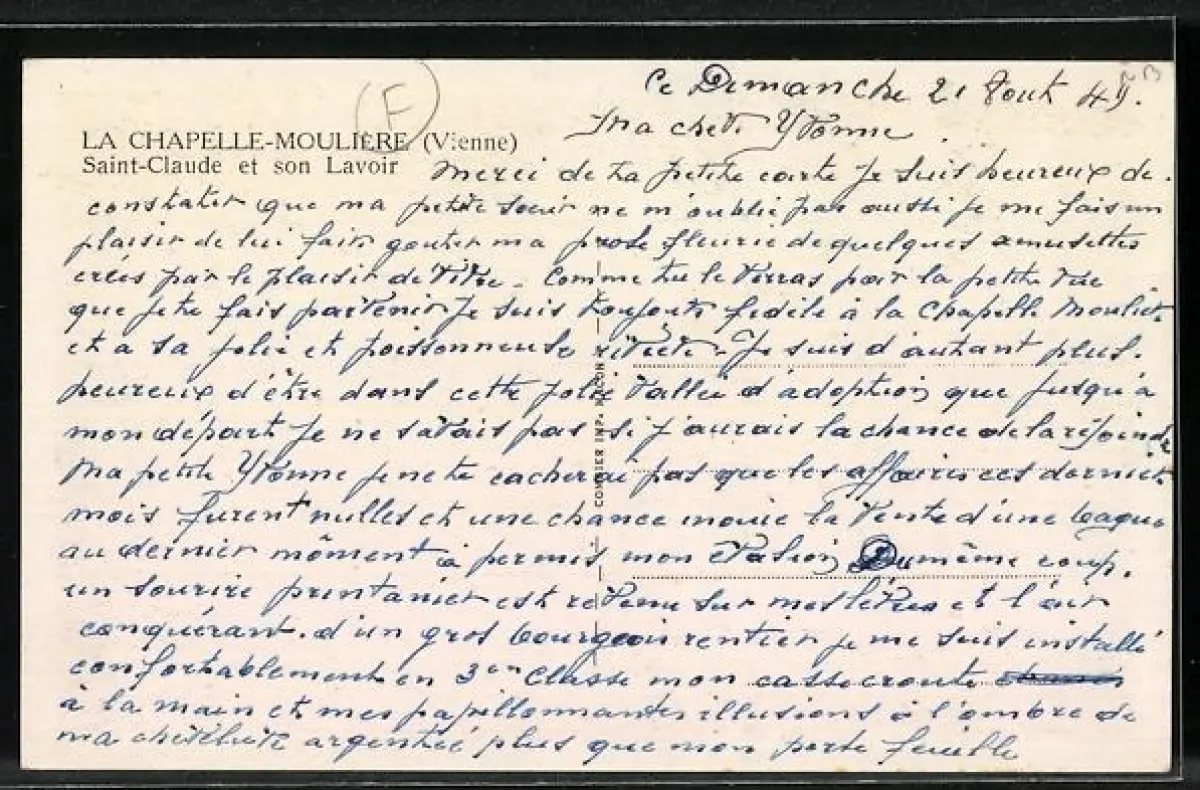 (F)
Ce Dimanche 21 Aout 49.
Ma chere Yvonne.
LA CHAPELLE-MOULIÈRE (Vienne)
Saint-Claude et son Lavoir
Merci de ta petite carte je suis heureux de
constater que ma petite sœur ne m'oublie pas aussi je me fais un
plaisir de lui faire gouter ma prose fleurie de quelques amusettes
crées par le plaisir de vivre - Comme tu le verras par la petite vue
que je te fais parvenir je suis toujours fidèle à la Chapelle Moulière
et a sa jolie et poissonneuse rivière - Je suis d'autant plus
heureux d'être dans cette jolie vallée d'adoption que jusqu'à
mon départ je ne savais pas si j'aurais la chance de la rejoindre
Ma petite Yvonne je ne te cacherai pas que les affaires ces derniers
mois furent nulles et une chance inouie la vente d'une bague
au dernier môment à permis mon évasion Du même coup.
un sourire printanier est revenu sur mes lèvres et l'air
conquérant d'un gros bourgeois rentier je me suis installé
confortablement en 3em Classe mon casse croute
à la main et mes papillonnantes illusions à l'ombre de
ma chevelure argentée plus que mon porte feuille
COMBIER IMP. MACON